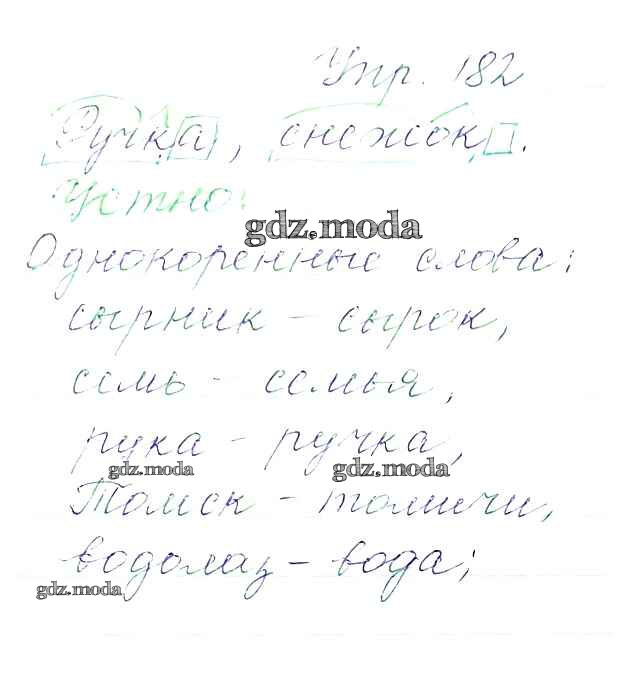 Упр. 182
Ручка, снежок.
Устно:
gdz.moda
Однокоренные слова:
сырник - сырок,
семь - семья,
рука - ручка,
gdz.moda gdz.moda
Томск - томичи,
водолаз - вода;
gdz.moda